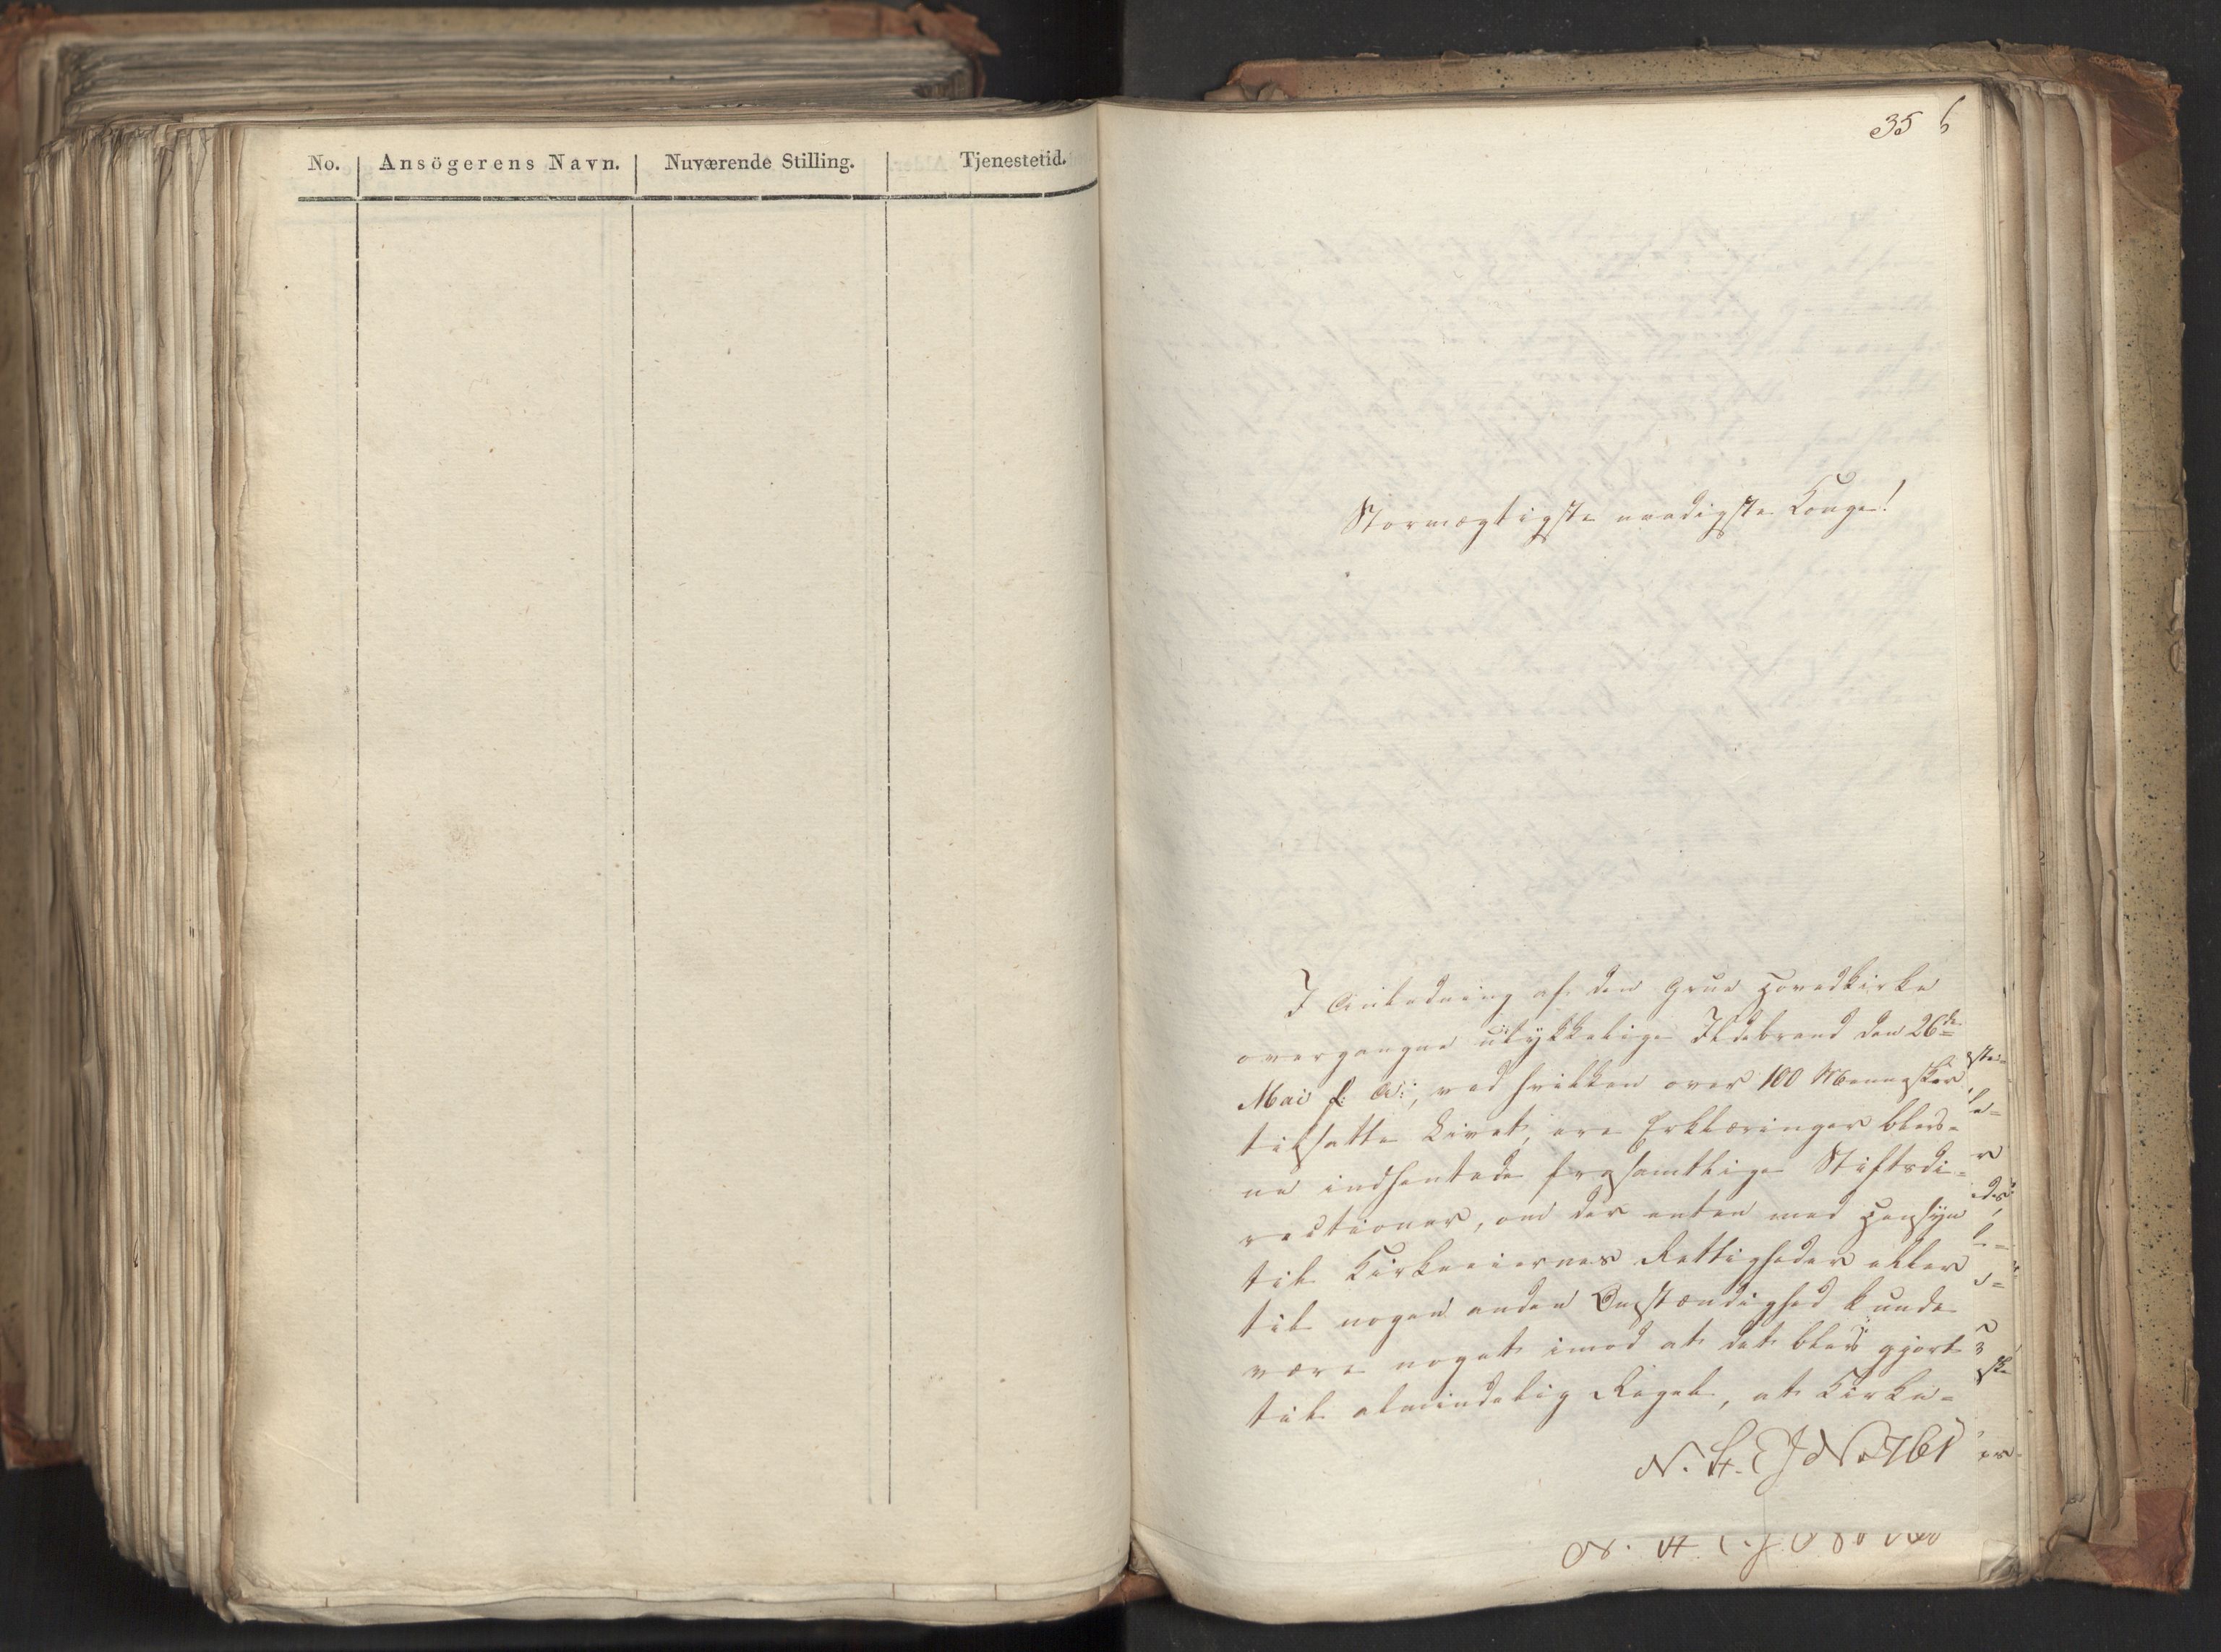 No. Ansögerens Navn. Nuværende Stilling. Tjenestetid.
35 6
Stormægtigste naadigste Konge!
I Anledning af den Grue Hovedkirke
overgangne ulykkelige Ildebrand den 26de
Mai f: A:, ved hvilken over 100 Mennesker
tilsatte Livet, ere Erklæringer blev-
ne indhentede fra samtlige Stiftsdi-
rectioner, om der enten med Hensyn
til Kirkeeiernes Rettigheder eller
til nogen anden Omstændighed kunde
være noget imod at det blev gjort
til almindelig Regel, at Kirke-